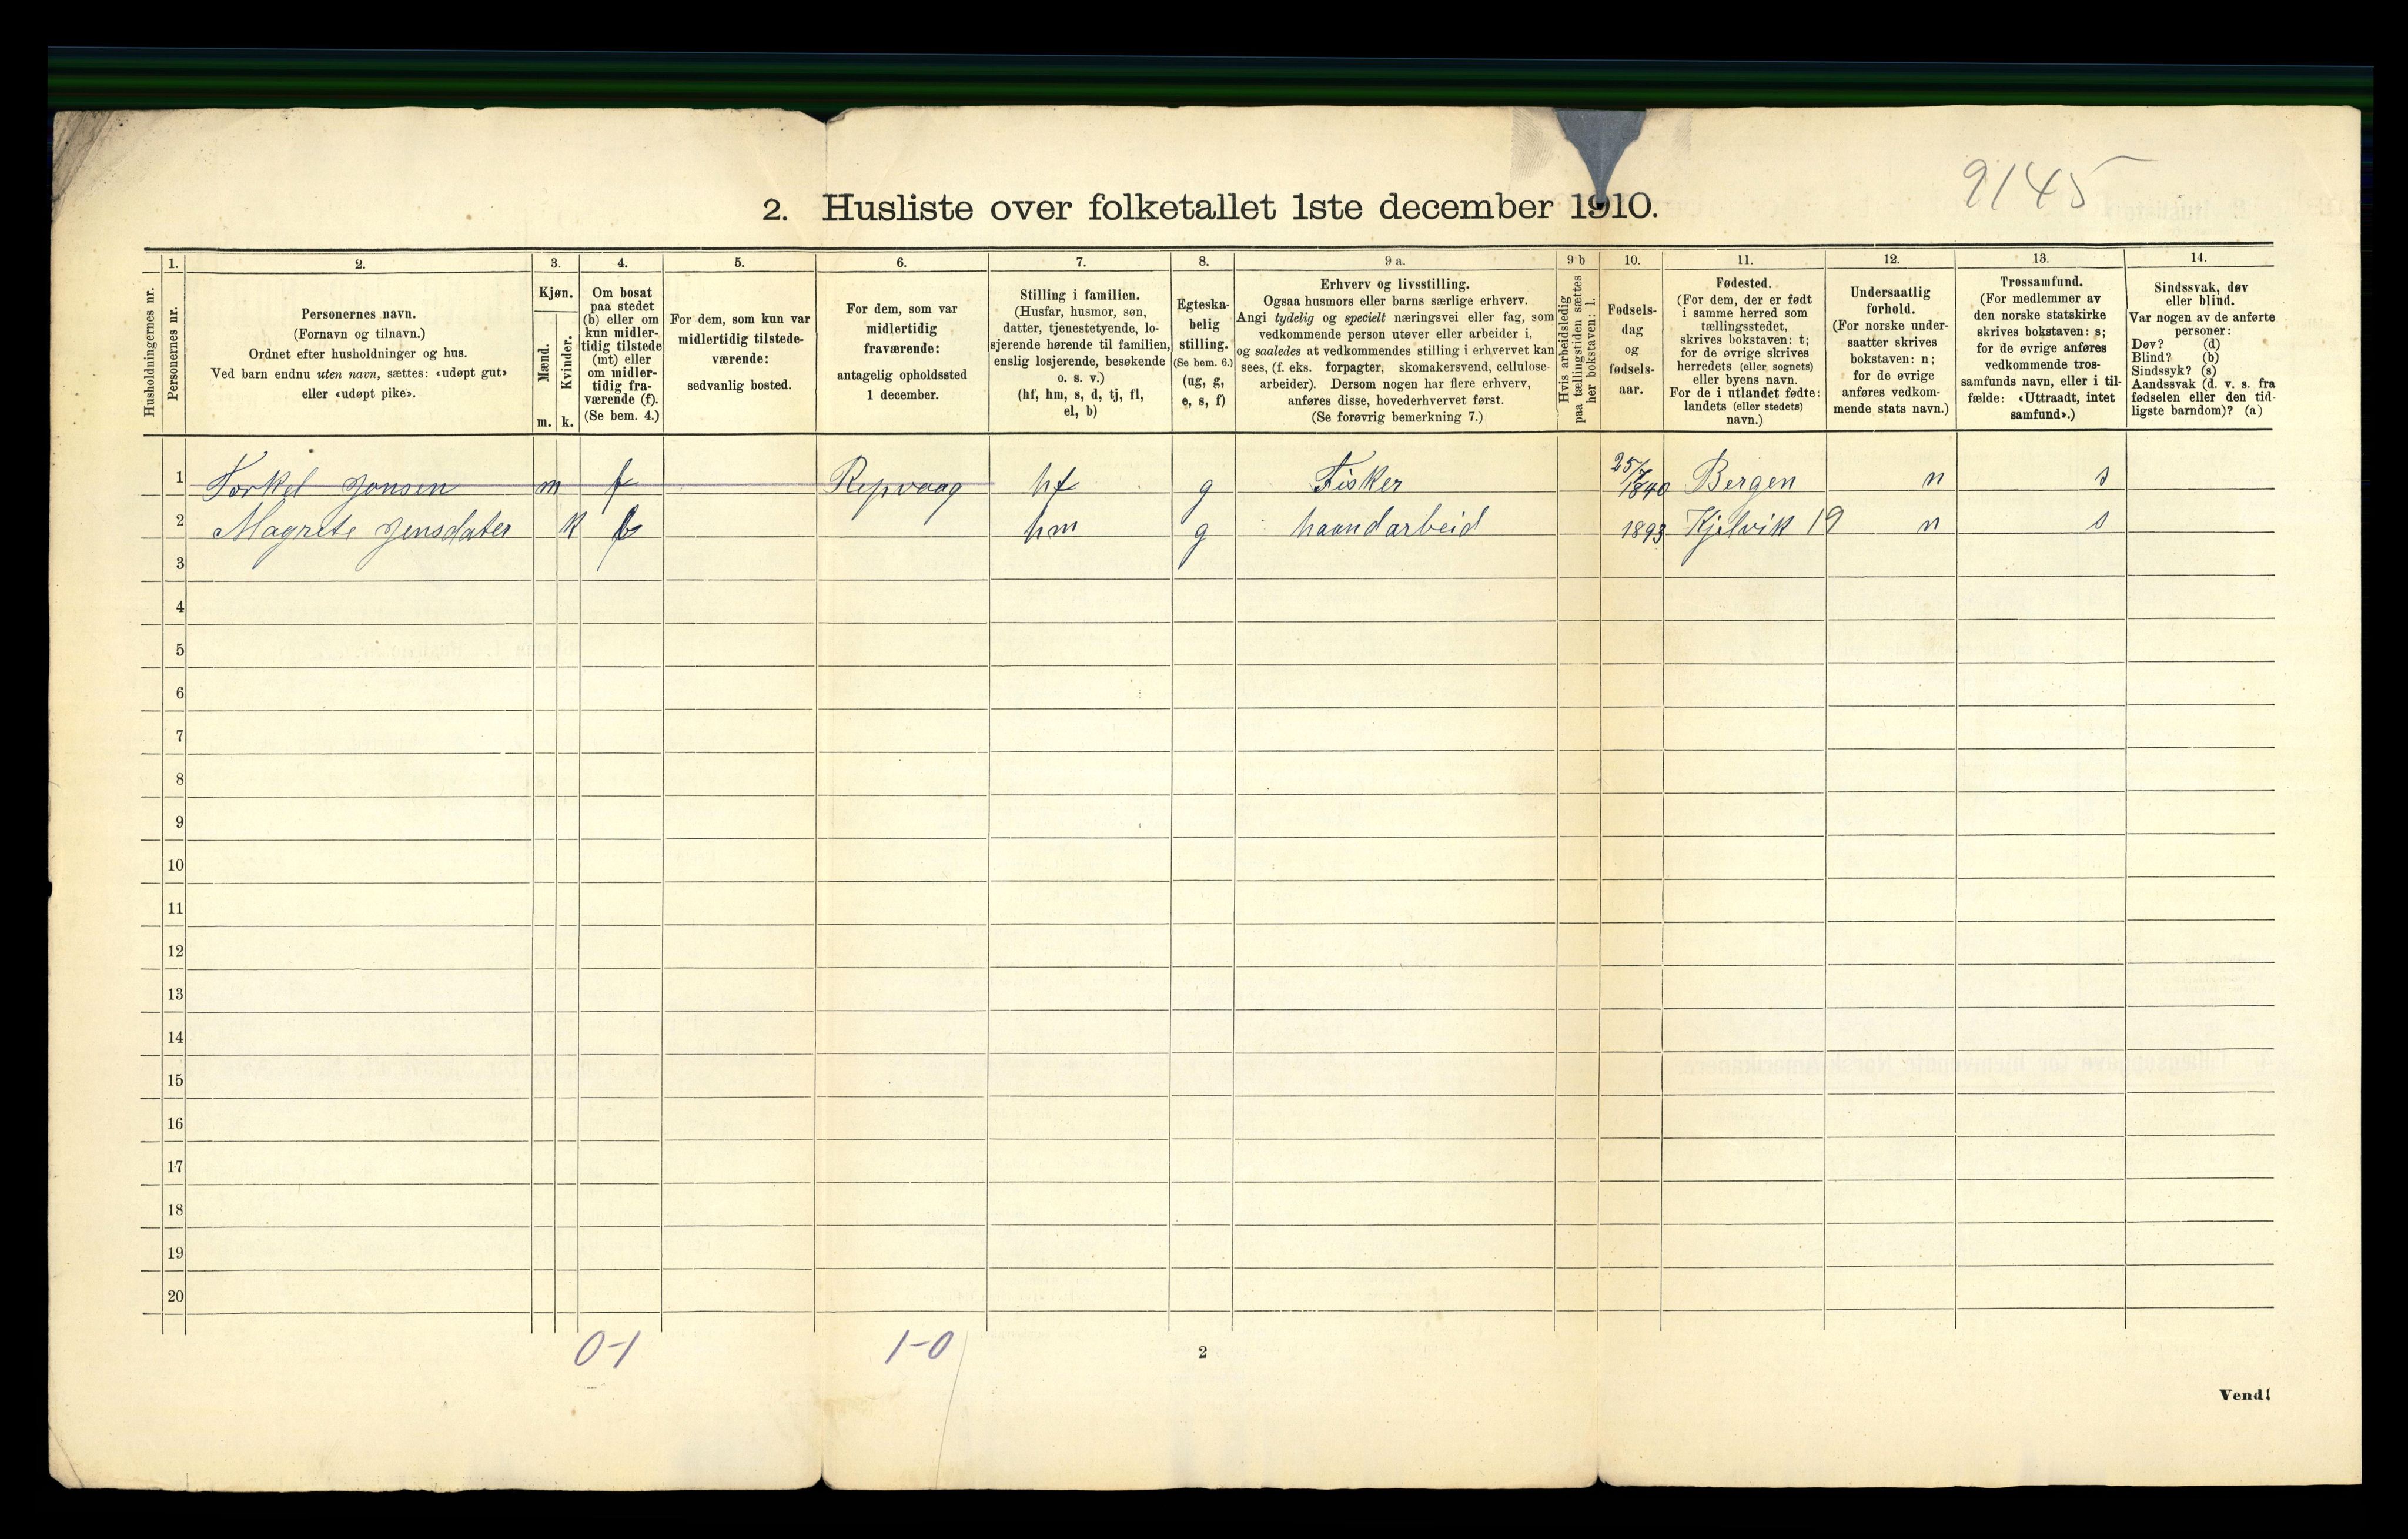 9145
2. Husliste over folketallet 1ste december 1910.
Husholdningernes nr.
1.
Personernes nr.
2.
Personernes navn.
(Fornavn og tilnavn.)
Ordnet efter husholdninger og hus.
Ved barn endnu uten navn, sættes: «udøpt gut»
eller «udøpt pike».
3.
Kjøn.
Mænd.
Kvinder.
m. k.
4.
Om bosat
paa stedet
(b) eller om
kun midler-
tidig tilstede
(mt) eller
om midler-
tidig fra-
værende (f).
(Se bem. 4.)
5.
For dem, som kun var
midlertidig tilstede-
værende:
sedvanlig bosted.
6.
For dem, som var
midlertidig
fraværende:
antagelig opholdssted
1 december.
7.
Stilling i familien.
(Husfar, husmor, søn,
datter, tjenestetyende, lo-
sjerende hørende til familien,
enslig losjerende, besøkende
o. s. v.)
(hf, hm, s, d, tj, fl,
el, b)
8.
Egteska-
belig
stilling.
(Se bem. 6.)
(ug, g,
e, s, f)
9 a.
Erhverv og livsstilling.
Ogsaa husmors eller barns særlige erhverv.
Angi tydelig og specielt næringsvei eller fag, som
vedkommende person utøver eller arbeider i,
og saaledes at vedkommendes stilling i erhvervet kan
sees, (f. eks. forpagter, skomakersvend, cellulose-
arbeider). Dersom nogen har flere erhverv,
anføres disse, hovederhvervet først.
(Se forøvrig bemerkning 7.)
9 b
Hvis arbeidsledig
paa tællingstiden sættes
her bokstaven: l.
10.
Fødsels-
dag
og
fødsels-
aar.
11.
Fødested.
(For dem, der er født
i samme herred som
tællingsstedet,
skrives bokstaven: t;
for de øvrige skrives
herredets (eller sognets)
eller byens navn.
For de i utlandet fødte:
landets (eller stedets)
navn.)
12.
Undersaatlig
forhold.
(For norske under-
saatter skrives
bokstaven: n;
for de øvrige
anføres vedkom-
mende stats navn.)
13.
Trossamfund.
(For medlemmer av
den norske statskirke
skrives bokstaven: s;
for de øvrige anføres
vedkommende tros-
samfunds navn, eller i til-
fælde: «Uttraadt, intet
samfund».)
14.
Sindssvak, døv
eller blind.
Var nogen av de anførte
personer:
Døv? (d)
Blind? (b)
Sindssyk? (s)
Aandssvak (d. v. s. fra
fødselen eller den tid-
ligste barndom)? (a)
1 Torkel Jonsen m f Repvaag hf g Fisker 25/7 1840 Bergen n s
2 Magrete Jensdater k b hm g haandarbeid 1893 Kjelvik 19 n s
3
4
5
6
7
8
9
10
11
12
13
14
15
16
17
18
19
20
0-1 1-0
2
Vend!